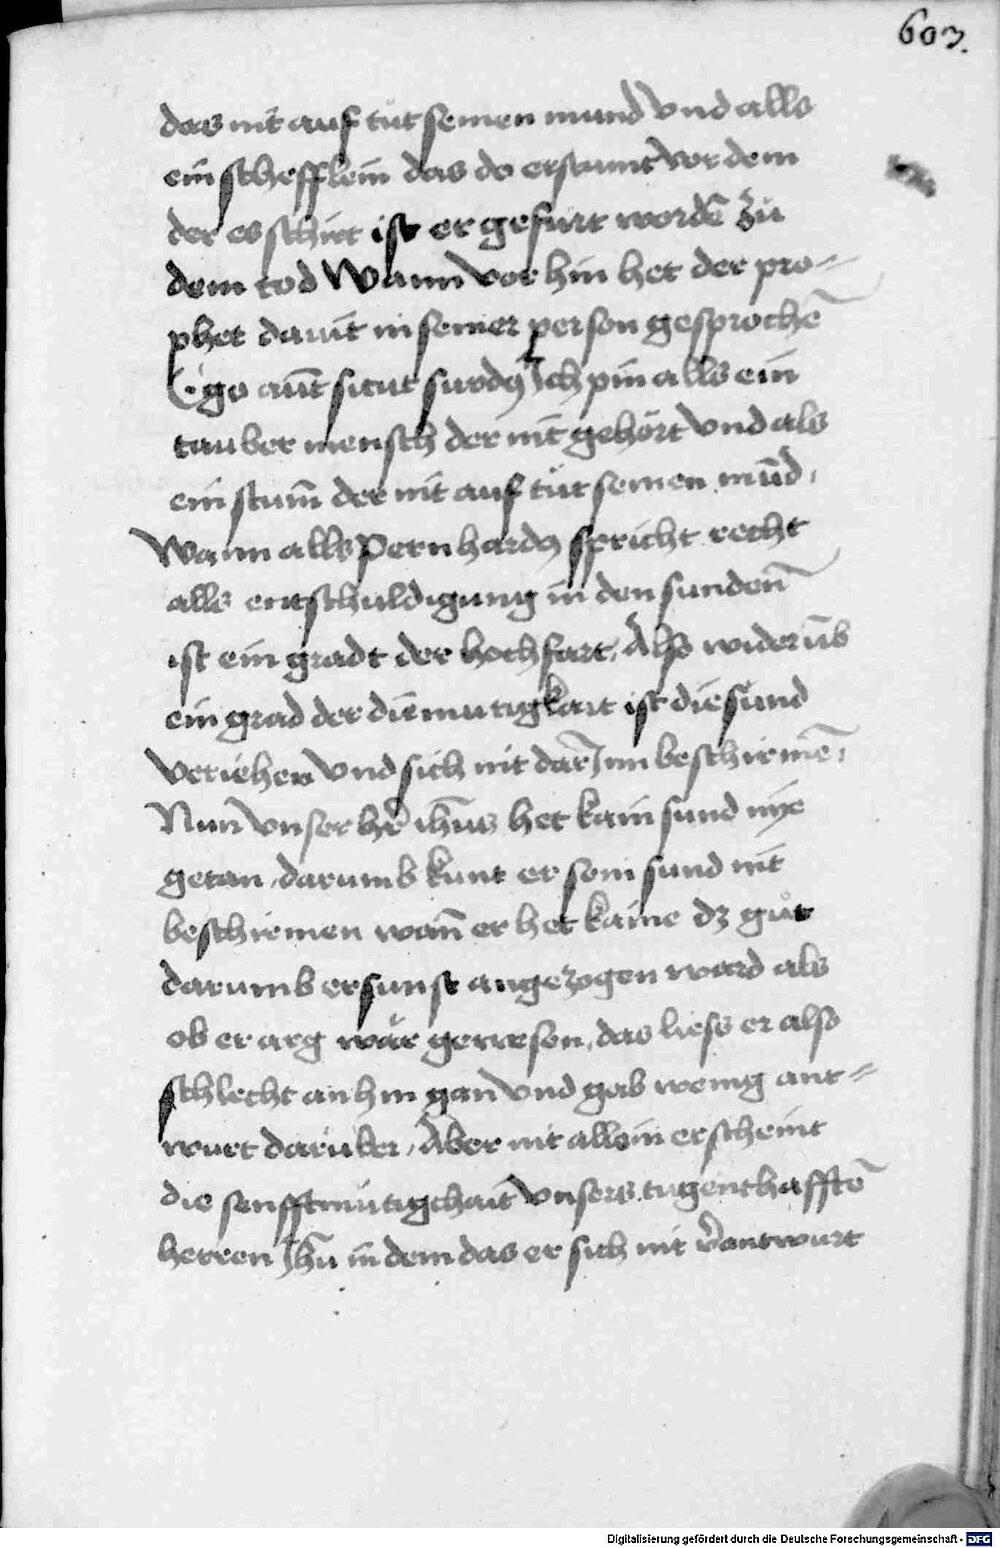 603.
das nit auf tůt seinen mund vnd alls
ein schefflein das do erstumt vor dem
der es schirt ist er gefürt wordē zů
dem tod Wann vor hin het der pro=
phet dauit in seiner person gesprochē
Ego aūt sicut surdꝰ Ich pin alls ein
tauber mensch der nit gehört vnd als
ein stum̄ der nit auf tůt seinen mūd,
Wann alls Pernhardꝰ spricht recht
alls entschuldigung in den sunden
ist ein gradt der hochfart, Also widerūb
ein grad der diemutigkait ist die sünd
veriehen vnd sich nit dar Inn beschirmē,
Nun vnser hr̄ ih̄us het kain sund nye
getan, darumb kunt er sein sund nit
beschirmen wan̄ er het kaine dz gůt
darumb er sunst angezogen ward als
ob er arg wär gewesen, das liess er also
schlecht an hin gan vnd gab wenig ant=
wurt darüber, Aber nit allein erscheint
die senfftmütigchait vnsers tugenthafftē
herren Ih̄u in dem das er sich nit v̄antwurt
Digitalisierung gefördert durch die Deutsche Forschungsgemeinschaft - DFG